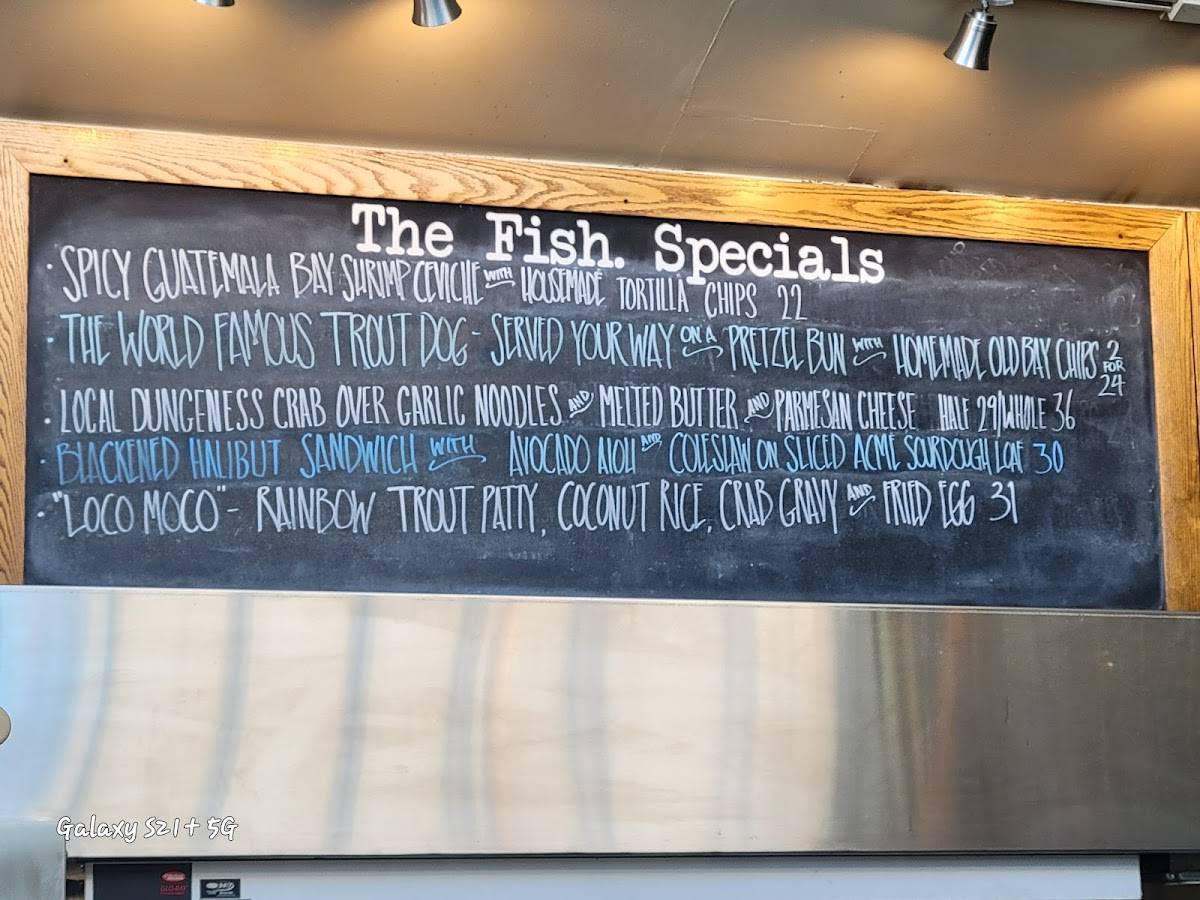 The Fish. Specials
· SPICY GUATEMALA BAY SHRIMP CEVICHE WITH HOUSEMADE TORTILLA CHIPS 22
· THE WORLD FAMOUS TROUT DOG - SERVED YOUR WAY ON A PRETZEL BUN WITH HOMEMADE OLD BAY CHIPS 2 FOR 24
· LOCAL DUNGENESS CRAB OVER GARLIC NOODLES AND MELTED BUTTER AND PARMESAN CHEESE HALF 29/WHOLE 36
· BLACKENED HALIBUT SANDWICH WITH AVOCADO AIOLI AND COLESLAW ON SLICED ACME SOURDOUGH LOAF 30
· "LOCO MOCO" - RAINBOW TROUT PATTY, COCONUT RICE, CRAB GRAVY AND FRIED EGG 31
Galaxy S21+ 5G
GLO-RAY